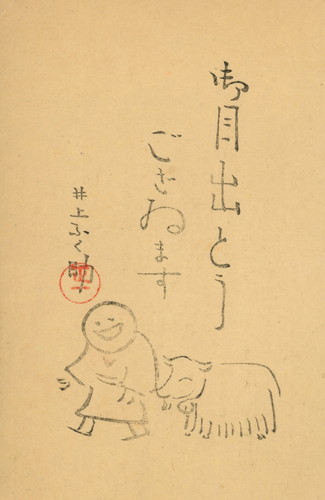 御目出とう
ござゐます
井上ふく